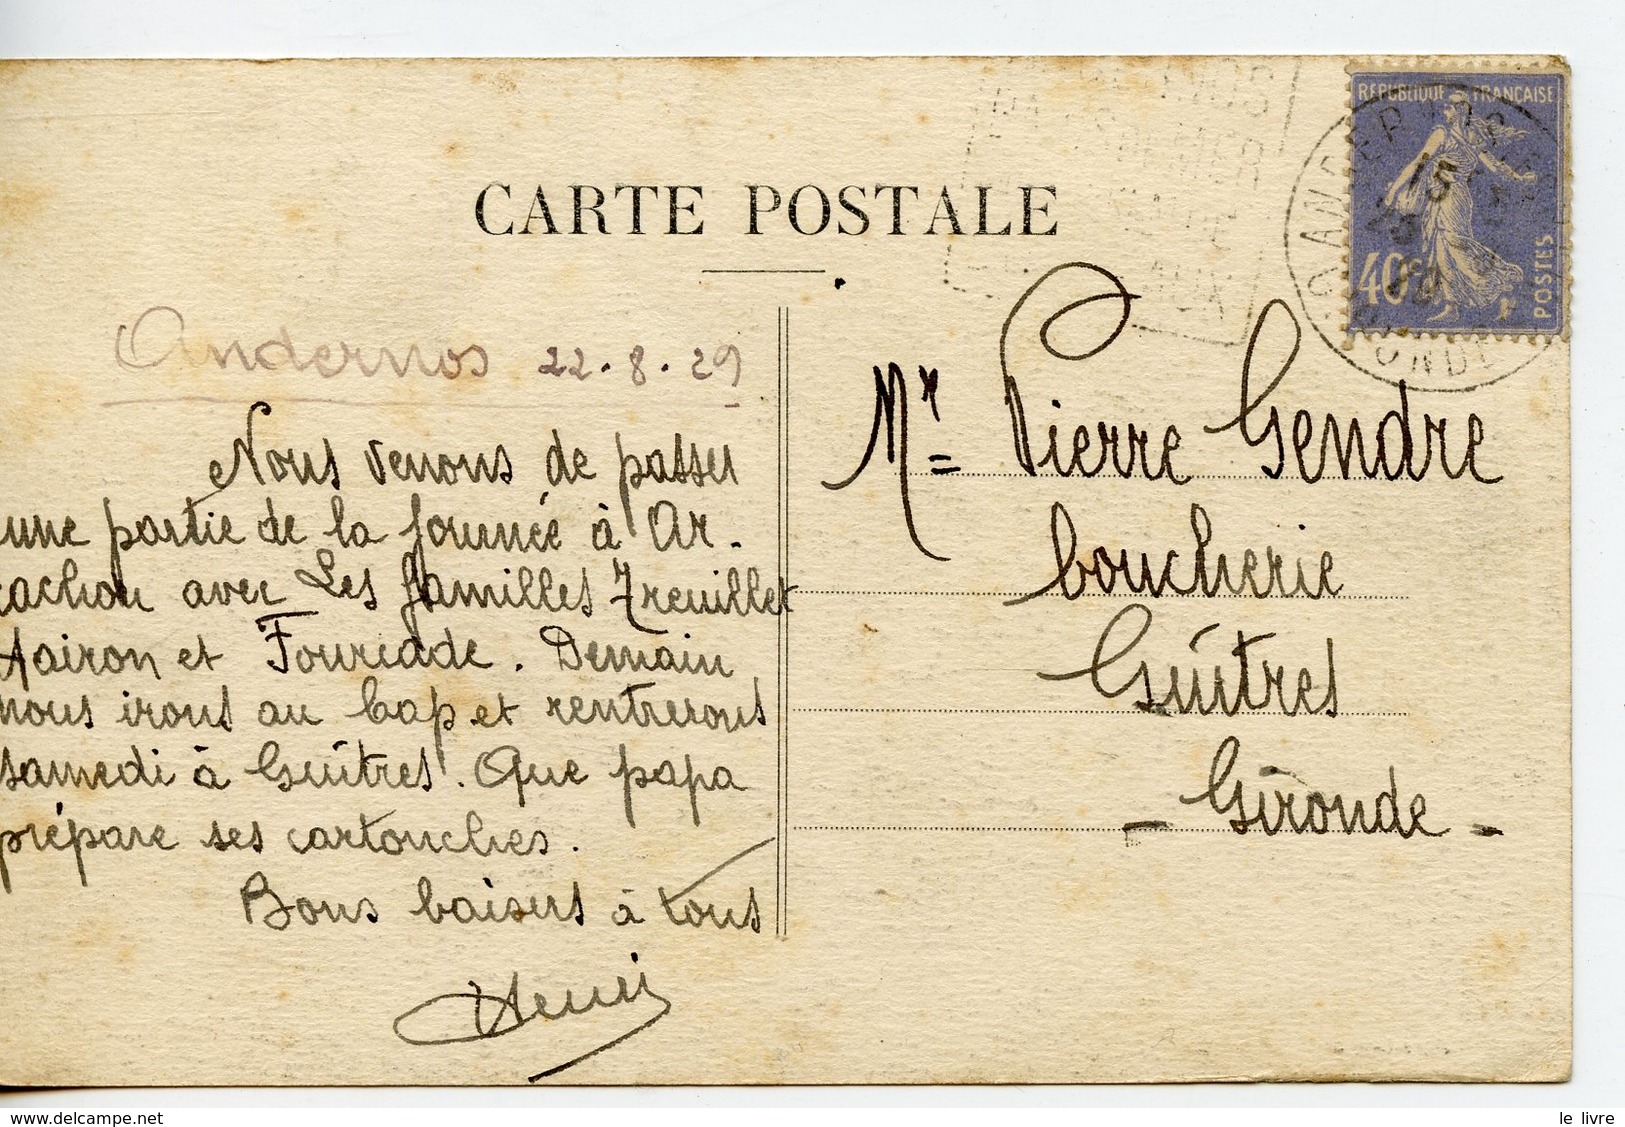 CARTE POSTALE
REPUBLIQUE FRANÇAISE
40c
POSTES
Andernos 22.8.29
Nous venons de passer
une partie de la journée à Ar-
cachon avec Les familles Treuillet
et Fourcade. Demain
nous irons au Cap et rentrerons
samedi à Guîtres. Que papa
prépare ses cartouches.
Bons baisers à tous
Henri
Mr Pierre Gendre
boucherie
Guîtres
- Gironde -
delcampe.net
le livre